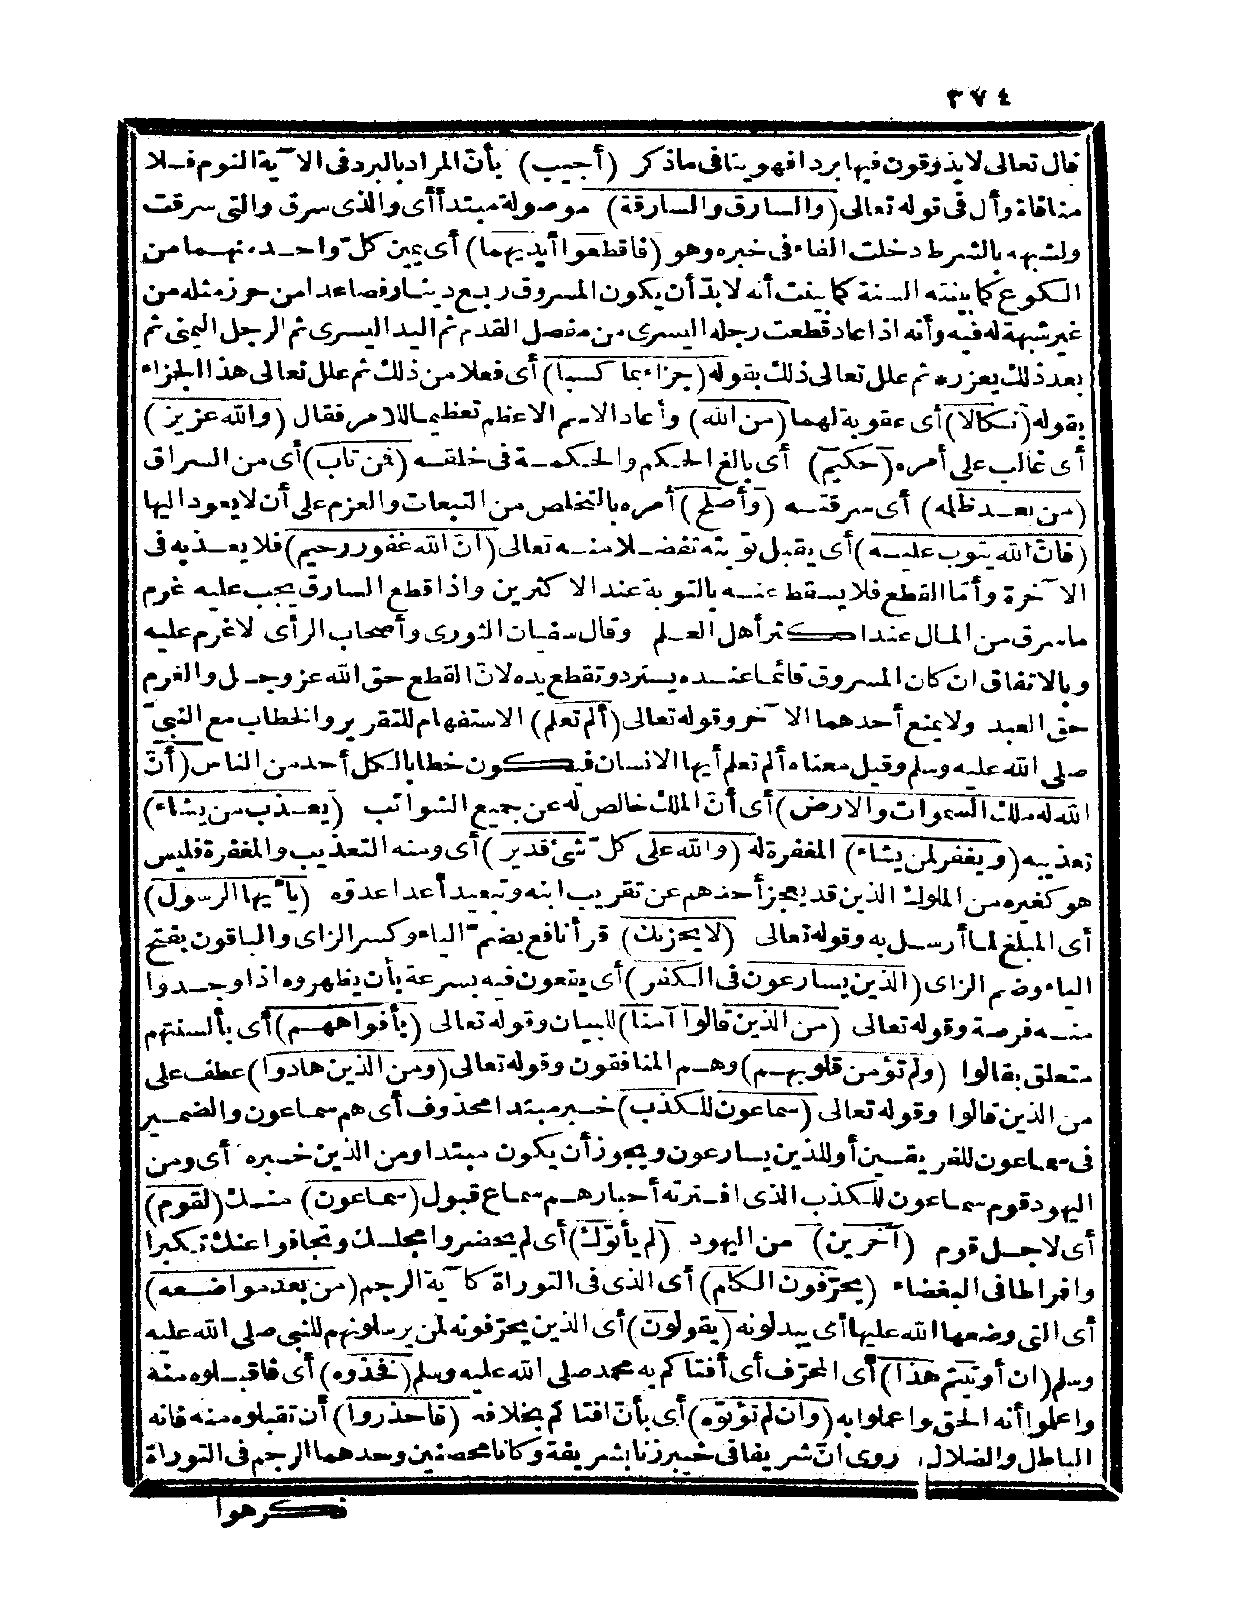 ٣٧٤
قال تعالى لا يذوقون فيها بردا فهو ينافى ماذكر (أجيب) بأنّ المراد بالبرد فى الآية النوم فلا
منافاة وأل فى قوله تعالى (والسارق والسارقة) موصولة مبتدأ أى والذى سرق والتى سرقت
ولشبهه بالشرط دخلت الفاء فى خبره وهو (فاقطعوا أيديهما) أى يمين كلّ واحد منهما من
الكوع كما بينته السنة كما بينت أنه لا بدّ أن يكون المسروق ربع دينار فصاعدا من حرز مثله من
غير شبهة له فيه وأنه اذا عاد قطعت رجله اليسرى من مفصل القدم ثم اليد اليسرى ثم الرجل اليمنى ثم
بعد ذلك يعزره ثم علل تعالى ذلك بقوله (جزاء بما كسبا) أى فعلا من ذلك ثم علل تعالى هذا الجزاء
بقوله (نكالا) أى عقوبة لهما (من الله) وأعاد الاسم الاعظم تعظيما للامر فقال (والله عزيز)
أى غالب على أمره (حكيم) أى بالغ الحكم والحكمة فى خلقه (فمن تاب) أى من السراق
(من بعد ظلمه) أى سرقته (وأصلح) أمره بالتخلص من التبعات والعزم على أن لا يعود اليها
(فانّ الله يتوب عليه) أى يقبل توبته تفضلا منه تعالى (انّ الله غفور رحيم) فلا يعذبه فى
الآخرة وأمّا القطع فلا يسقط عنه بالتوبة عند الاكثرين واذا قطع السارق يجب عليه غرم
ما سرق من المال عند أكثر أهل العلم وقال سفيان الثورى وأصحاب الرأى لا غرم عليه
وبالاتفاق ان كان المسروق قائما عنده يسترد وتقطع يده لانّ القطع حق الله عز وجل والغرم
حق العبد ولا يمنع أحدهما الآخر وقوله تعالى (ألم تعلم) الاستفهام للتقرير والخطاب مع النبىّ
صلى الله عليه وسلم وقيل معناه ألم تعلم أيها الانسان فيكون خطابا لكل أحد من الناس (أنّ
الله له ملك السموات والارض) أى أنّ الملك خالص له عن جميع الشوائب (يعذب من يشاء)
تعذيبه (ويغفر لمن يشاء) المغفرة له (والله على كلّ شئ قدير) أى ومنه التعذيب والمغفرة فليس
هو كغيره من الملوك الذين قد يعجز أحدهم عن تقريب ابنه وتبعيد أعدا عدوه (يأيها الرسول)
أى المبلغ لما أرسل به وقوله تعالى (لا يحزنك) قرأ نافع بضمّ الياء وكسر الزاى والباقون بفتح
الياء وضم الزاى (الذين يسارعون فى الكفر) أى يقعون فيه بسرعة بأن يظهروه اذا وجدوا
منه فرصة وقوله تعالى (من الذين قالوا آمنا) للبيان وقوله تعالى (بأفواههم) أى بألسنتهم
متعلق بقالوا (ولم تؤمن قلوبهم) وهم المنافقون وقوله تعالى (ومن الذين هادوا) عطف على
من الذين قالوا وقوله تعالى (سماعون للكذب) خبر مبتدا محذوف أى هم سماعون والضمير
فى سماعون للفريقين أو للذين يسارعون ويجوز أن يكون مبتدا ومن الذين خبره أى ومن
اليهود قوم سماعون للكذب الذى افترته أحبارهم سماع قبول (سماعون) منك (لقوم)
أى لاجل قوم (آخرين) من اليهود (لم يأتوك) أى لم يحضروا مجلسك وتجافوا عنك تكبرا
وافراطا فى البغضاء (يحرّفون الكلم) أى الذى فى التوراة كآية الرجم (من بعد مواضعه)
أى التى وضعها الله عليها أى يبدلونه (يقولون) أى الذين يحرّفونه لمن يرسلونهم للنبى صلى الله عليه
وسلم (ان أوتيتم هذا) أى المحرّف أى أفتاكم به محمد صلى الله عليه وسلم (فخذوه) أى فاقبلوه منه
واعلموا أنه الحق واعملوا به (وان لم تؤتوه) أى بأن افتاكم بخلافه (فاحذروا) أن تقبلوه منه فانه
الباطل والضلال روى انّ شريفا فى خيبر زنا بشريفة وكانا محصنين وحدهما الرجم فى التوراة
فكرهوا